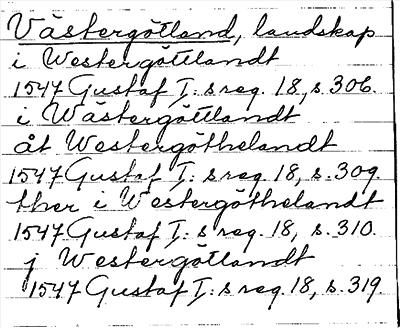 Västergötland, landskap
i Westergöttlandt
1547 Gustaf I:s reg. 18, s. 306.
i Wästergöttlandt
åt Westergöthelandt
1547 Gustaf I:s reg. 18, s. 309.
ther i Westergöthelandt
1547 Gustaf I:s reg. 18, s. 310.
j Westergötlandt
1547 Gustaf I:s reg. 18, s. 319.